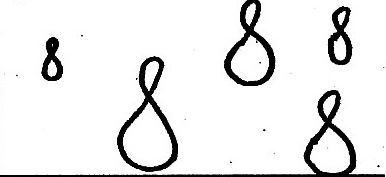 8 8 8
8 8